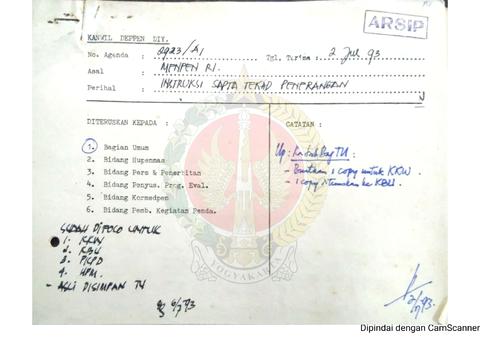 ARSIP
KANWIL DEPPEN DIY.
No. Agenda : 0923/A1 Tgl. Terima : 2 Jul 93
Asal : MENPEN RI.
Perihal : INSTRUKSI SAPTA TEKAD PENERANGAN
DITERUSKAN KEPADA : CATATAN :
1. Bagian Umum
2. Bidang Hupenmas
3. Bidang Pers & Penerbitan
4. Bidang Penyus. Prog. Eval.
5. Bidang Kormedpen
6. Bidang Pemb. Kegiatan Penda.
Up : Ka Sub Bag TU :
- Buatkan 1 copy untuk KKW
- 1 copy diteruskan ke KBU.
SUDAH DIFOTO UNTUK
1. KKW
2. KBU
3. PKPD
4. HPM.
- ASLI DISIMPAN TU
6/7 '93
YOGYAKARTA
Dipindai dengan CamScanner